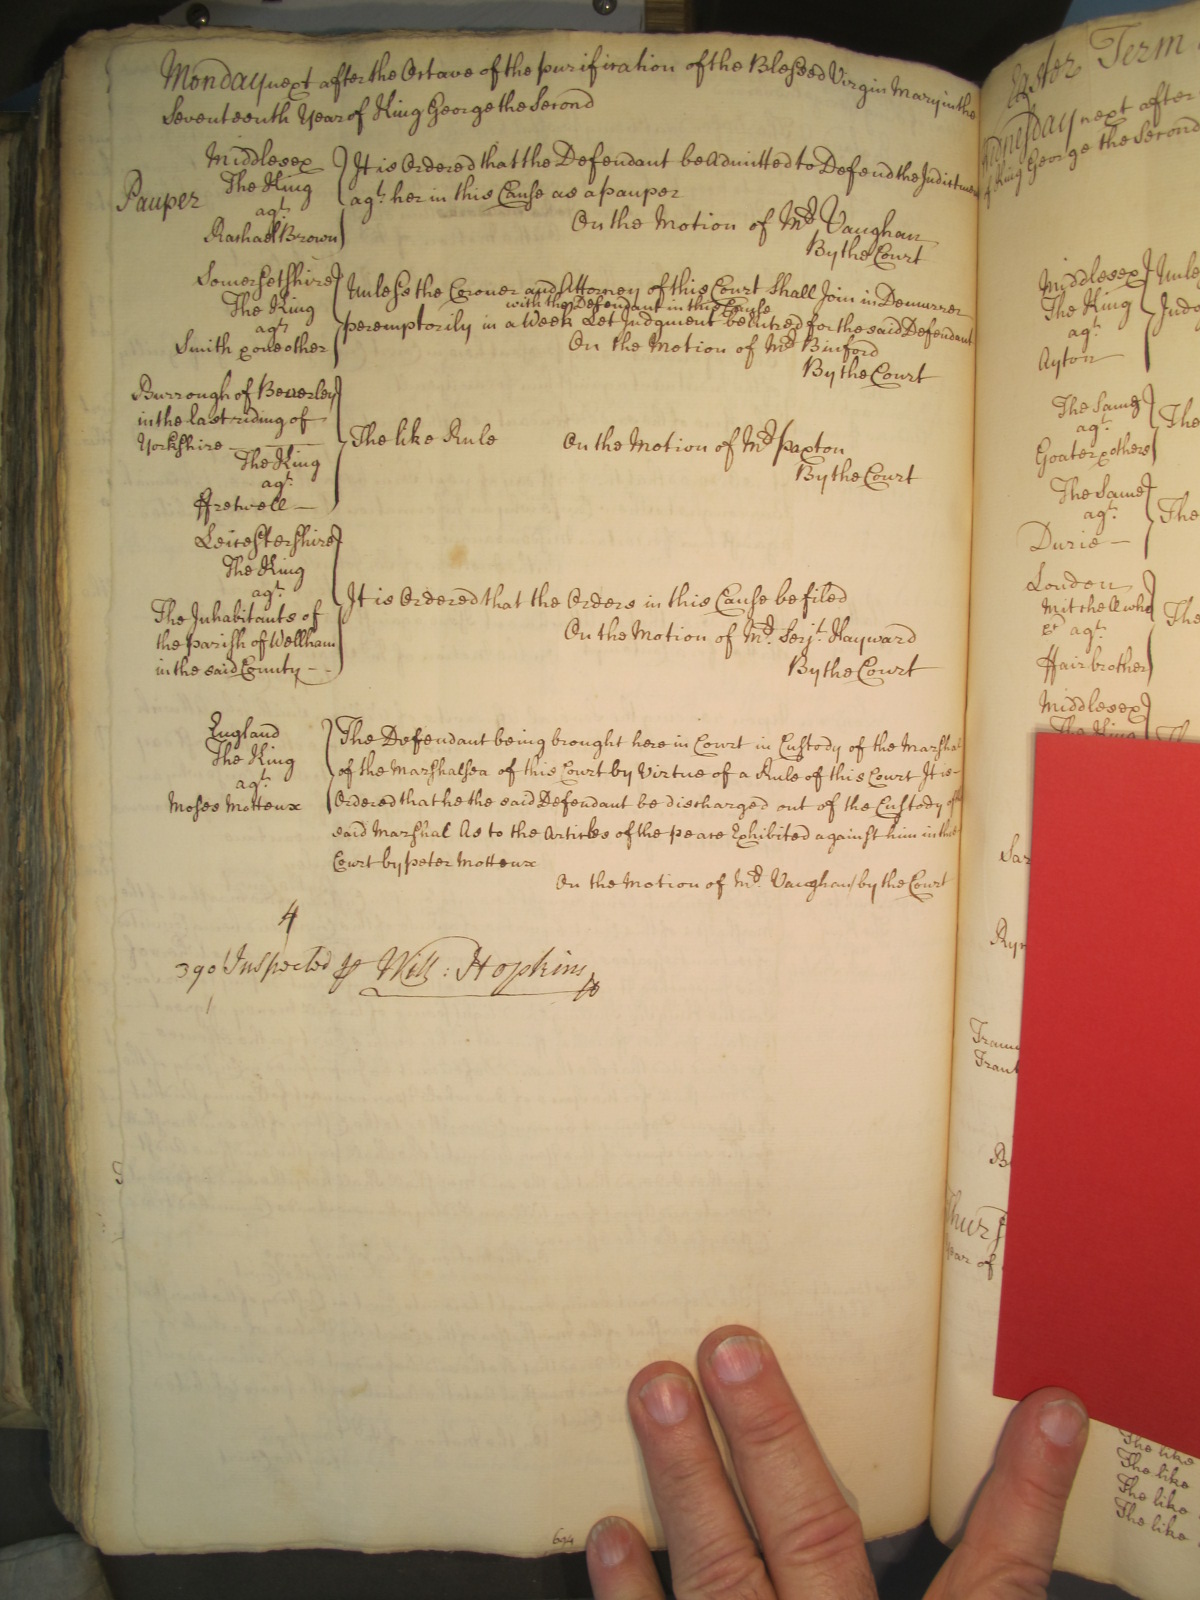 Monday next after the Octave of the purification of the Blessed Virgin Mary in the
Seventeenth Year of King George the Second
Pauper
Middlesex
The King
agt.
Rachael Brown
It is Ordered that the Defendant be Admitted to Defend the Indictment
agt. her in this Cause as a pauper
On the Motion of Mr. Vaughan
By the Court
Somersetshire
The King
agt.
Smith & one other
Unless the Coroner and Attorney of this Court Shall Join in Demurrer
with the Defendant in this Cause
peremptorily in a Week Let Judgment be Entred for the said Defendant
On the Motion of Mr. Binford
By the Court
Burrough of Beverley
in the East riding of
Yorkshire
The King
agt.
Fretwell
The like Rule
On the Motion of Mr. Paxton
By the Court
Leicestershire
The King
agt.
The Inhabitants of
the parish of Wellham
in the said County
It is Ordered that the Orders in this Cause be filed
On the Motion of Mr. Serjt. Hayward
By the Court
England
The King
agt.
Moses Motteux
The Defendant being brought here in Court in Custody of the Marshal
of the Marshalsea of this Court by Virtue of a Rule of this Court It is
Ordered that he the said Defendant be discharged out of the Custody of the
said Marshal As to the Articles of the peace Exhibited against him in this
Court by peter Motteux
On the Motion of Mr. Vaughan by the Court
4
390 Inspected P Will: Hopkins
694
Easter Term
next after
of King George the Second
Middlesex
The King
agt.
Ayton
The Same
agt.
Goater & others
The
The Same
agt.
Durie
The
London
Mitchell who
agt.
Hairbrother
The
Middlesex
The King
Year of
The like
The like
The like
The like